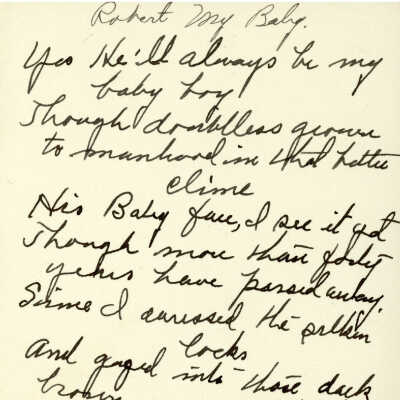 Robert My Baby.
Yes He'll always be my
baby boy
Though doubtless grown
to manhood in that better
clime
His Baby face, I see it yet
Though more than forty
years have passed away.
Since I caressed the silken
locks
And gazed into those dark
brown